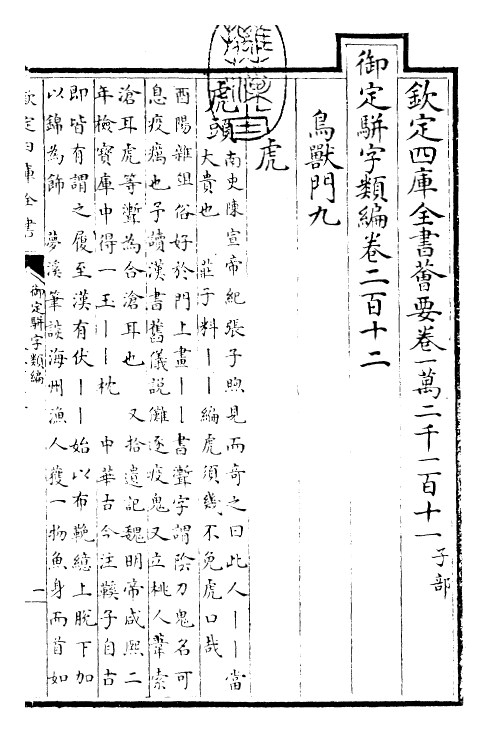 欽定四庫全書薈要卷一萬二千一百十一子部
御定駢字類編卷二百十二
鳥獸門九
虎
虎頭
南史陳宣帝紀張子煦見而奇之曰此人丨丨當
大貴也　莊子料丨丨編虎須幾不免虎口哉
酉陽雜俎俗好於門上畫丨丨書聻字謂陰刀鬼名可
息疫癘也予讀漢書舊儀說儺逐疫鬼又立桃人葦索
滄耳虎等聻為合滄耳也　又拾遺記魏明帝咸熙二
年檢寶庫中得一玉丨丨枕　中華古今注鞵子自古
即皆有謂之履至漢有伏丨丨始以布鞔繶上脫下加
以錦為飾　夢溪筆談海州漁人獲一物魚身而首如
欽定四庫全書
御定駢字類編
一